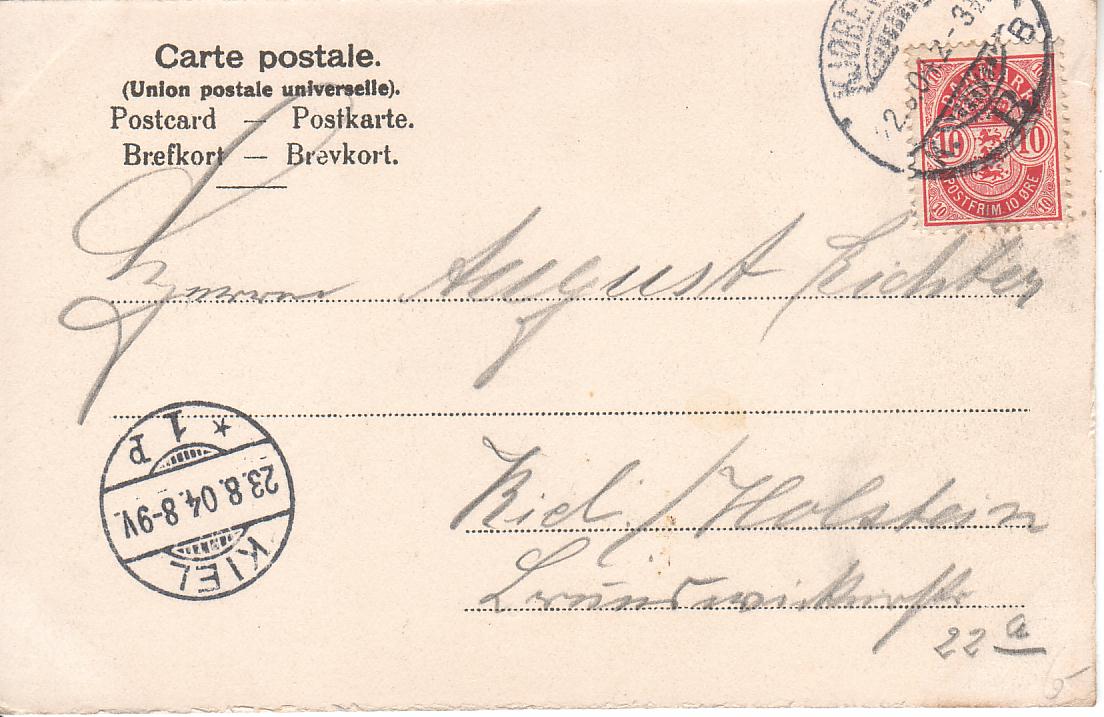 Carte postale.
(Union postale universelle).
Postcard — Postkarte.
Brefkort — Brevkort.
KJØBENH
K. B.
DANMARK
10 10
POSTFRIM. 10 ØRE
10 10
Herrn August Richter
Kiel / Holstein
Brunswickerstr
22 a
KIEL
23.8.04. 8-9V.
* 1 P